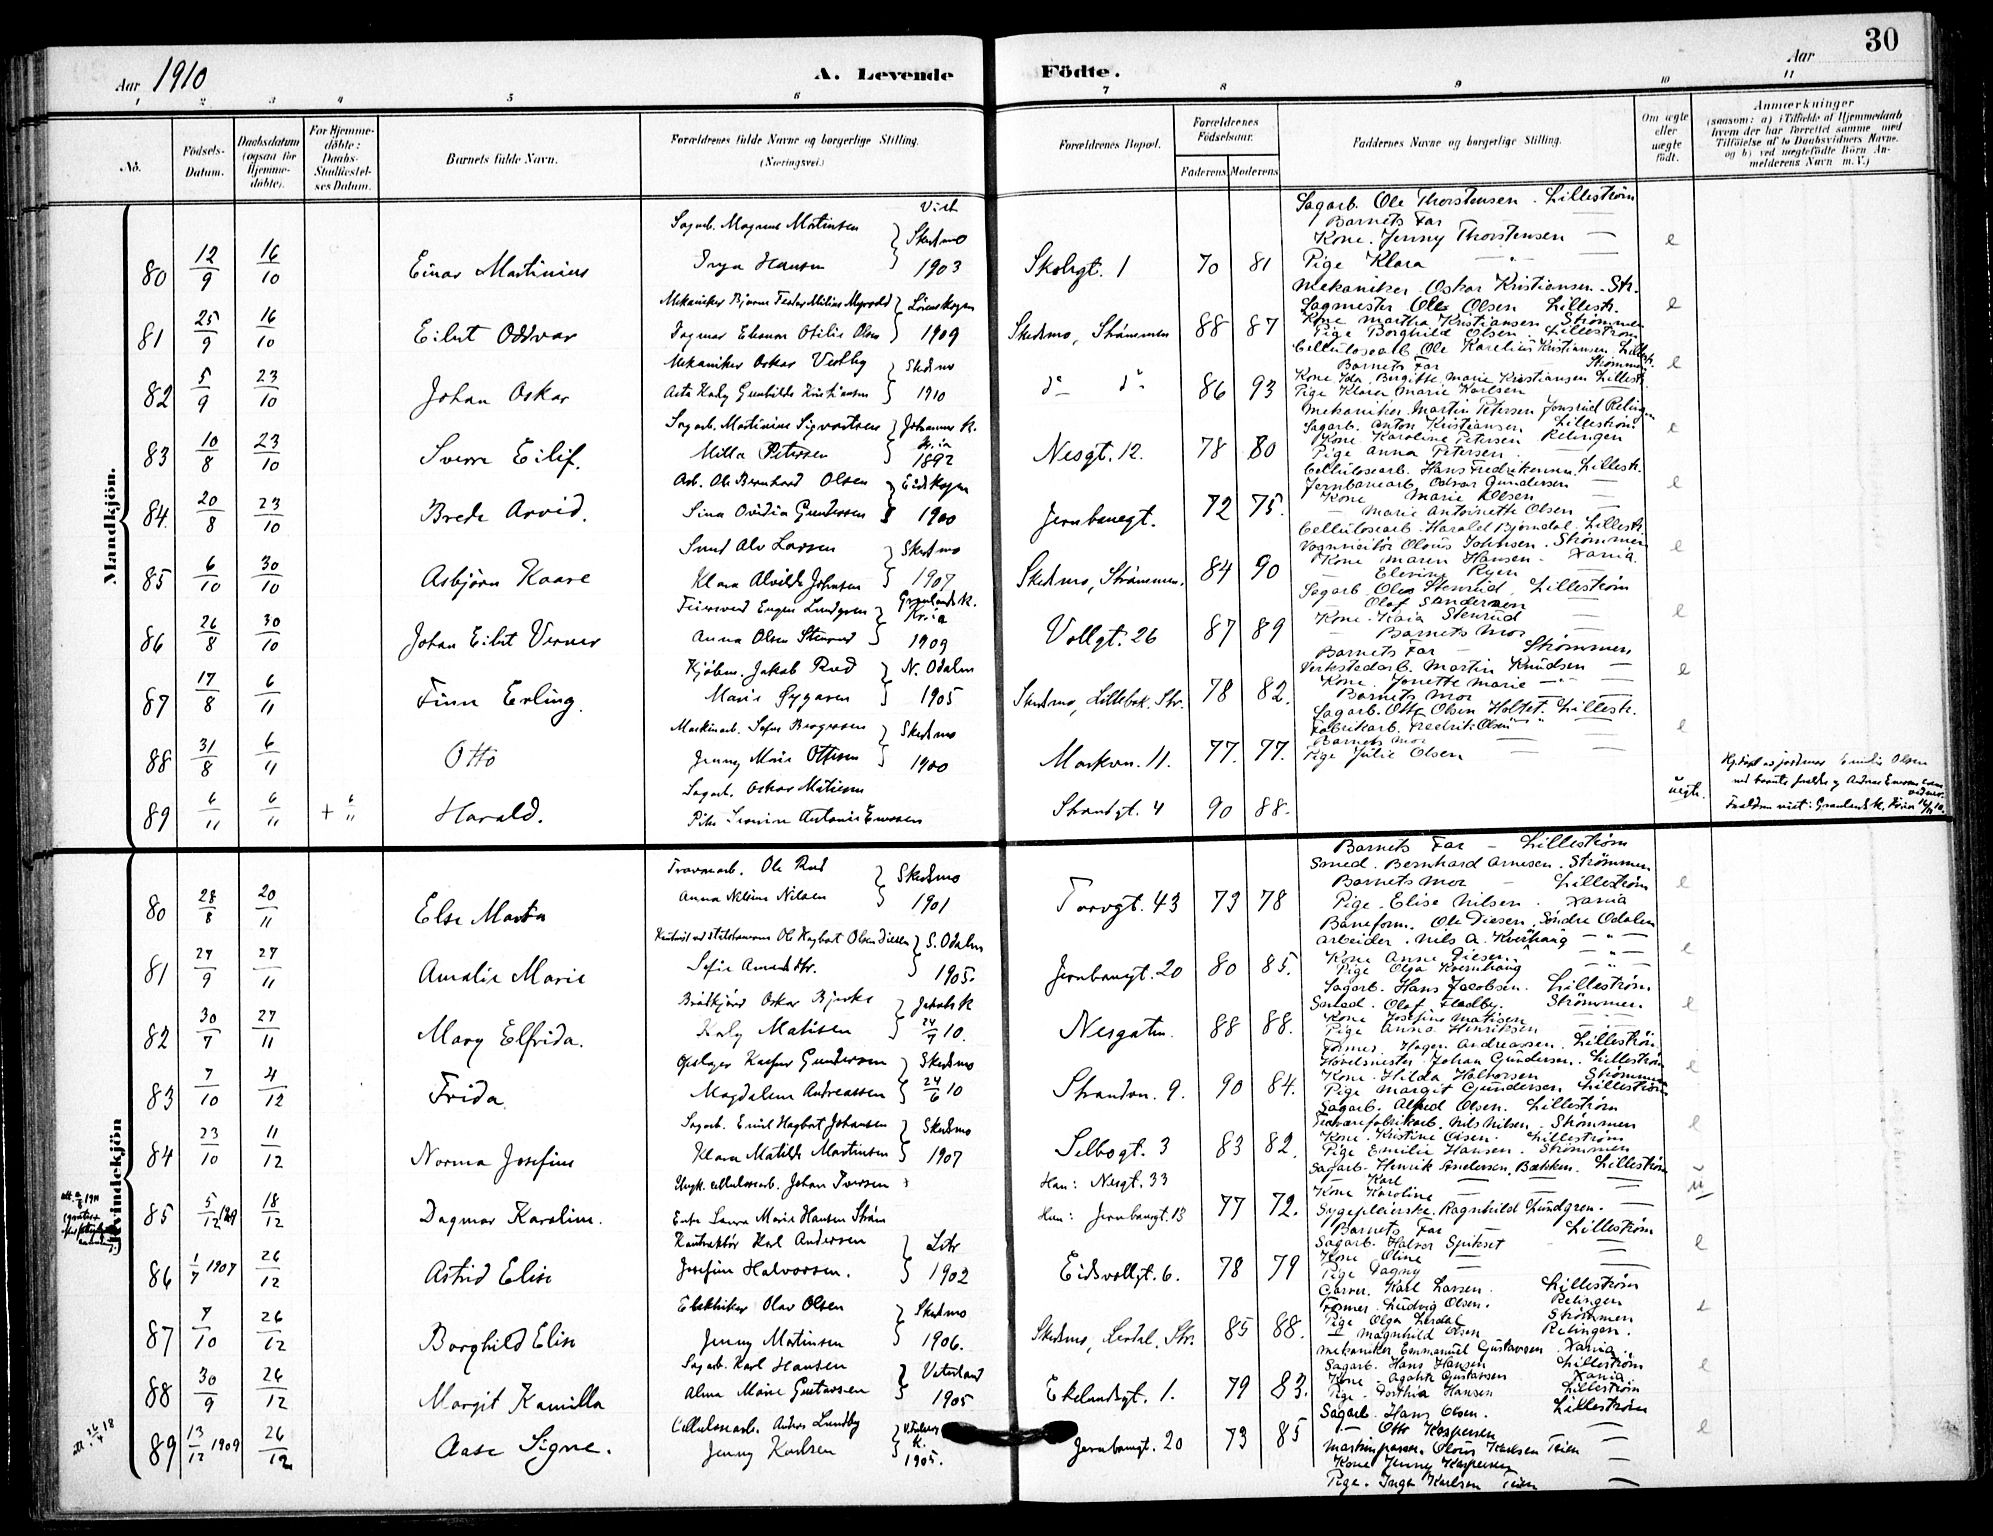 30
Aar 1910
A. Levende Födte.
Aar
1 2 3 4 5 6 7 8 9 10 11
No.
Födsels-Datum.
Daabsdatum (ogsaa for Hjemme-döbte).
For Hjemme-döbte: Daabs-Stadfæstel-ses Datum.
Barnets fulde Navn.
Forældrenes fulde Navne og borgerlige Stilling. (Næringsvei.)
Forældrenes Bopæl.
Forældrenes Födselsaar.
Faderens Moderens
Faddernes Navne og borgerlige Stilling.
Om ægte eller uægte födt.
Anmærkninger
(saasom: a) i Tilfælde af Hjemmedaab
hvem der har forrettet samme, med
Tilföielse af to Daabsvidners Navne.
og b) ved uægtefödte Börn An-
melderens Navn m. V.)
Mandkjön.
80 12/9 16/10 Einar Martinius
Sagarb. Magnus Martinsen
Inga Hansen
Skedsmo 1903
Skolegt. 1 70 81
Sagarb. Ole Thorstensen. Lilleström
Barnets Far
Kone. Jenny Thorstensen
Pige Klara
e
81 25/9 16/10 Eilert Oddvar
Dagmar Elenora Otilie Olsen
1909
Skedsmo, Strömmen 88 87
Mekaniker Oskar Kristiansen. Str.
Sagmester Ole Olsen Lillestr.
Kone Martha Kristiansen Strömmen
Pige Borghild Olsen. Lilleström
e
82 5/9 23/10 Johan Oskar
Mekaniker Oskar Vestby
Skedsmo 1910
do do 86 93
Cellulosearb. Ole Karelius Kristiansen Lillestr.
Barnets Far Strömmen
Kone Ida Birgitte Marie Kristiansen Lillestr.
Pige Klara Marie Karlsen
e
83 10/8 23/10 Sverre Eilif.
Sagarb. Martinius Sigvartsen
Milla Petersen
Johannes K. Kr.ia 1892
Nesgt. 12. 78 80
Mekaniker Martin Petersen Jonsrud Relingen
Sagarb. Anton Kristiansen Lilleström
Kone Karoline Petersen Relingen
Pige Anna Petersen
e
84. 20/8 23/10 Brede Arvid.
Arb. Ole Bernhard Olsen
Sina Ovidia Gundersen
Eidskogen 1900
Jernbanegt. 72 75.
Cellulosearb. Hans Fredriksen. Lillestr.
Jernbanearb. Odvar Gundersen
Kone Marie Olsen
Marie Antoinette Olsen
e
85 6/10 30/10 Asbjörn Kaare
Smed Alv Larsen
Klara Alvilde Johnsen
Skedsmo 1907
Skedsmo, Strömmen. 84 90
Cellulosearb. Harald Bjorndal. Lillestr.
Olaus Johnsen. Strömmen
Kone Maren Hansen. Xania
Ryen
e
86 26/8 30/10 Johan Eilert Verner
Eugen Lundgren
Anna Olsen Stenrud
Grönlands K. Kria 1909
Vollgt. 26 87 89
Sagarb. Ole Stenrud, Lilleström
Olaf Sandersen
Kone. Kaia Stenrud
Barnets Mor
e
87 17/8 6/11 Finn Erling.
Jakob Rud
N. Odalen 1905
Skedsmo, Lillebæk. Str. 78 82.
Barnets Far Strömmen
Verkstedarb. Martin Knudsen
Kone. Jonette Marie
Barnets Mor
e
88 31/8 6/11 Otto
Maskinarb. Sefus Bergersen
Jenny Marie Ottesen
Skedsmo 1900
Markvn. 11. 77. 77.
Sagarb. Otto Olsen Holtet. Lillestr.
Fabrikarb. Fredrik Olsen
Barnets Mor
Pige Julie Olsen
e
89 6/11 6/11 + 6/11 Harald.
Sagarb. Oskar Matisen
Strandgt. 4 90 88.
uegte.
Kvindekjön
80 28/8 20/11 Else Marta
Ole Rud
Anna Nilsine Nilsen
Skedsmo 1901
Torvgt. 43 73 78
Barnets Far - Lilleström
Smed. Bernhard Arnesen. Strömmen
Barnets Mor - Lilleström
Pige. Elise Nilsen. Xania
e
81 27/9 27/11 Amalie Marie
Ole Hagbart Olsen Diesen
S. Odalen 1905.
Jernbanegt. 20 80 85.
Baneform. Ole Diesen, Söndre Odalen
Arbeider. Nils A. Kvernhaug
Kone Anne Diesen.
Pige Olga Kvernhaug
e
82 30/7 27/11 Mary Elfrida.
Oskar Bjerke
Karly Matisen
Jakobs K 24/7 10.
Nesgaten. 88 88.
Sagarb. Hans Jacobsen. Lilleström
Smed. Olaf Fladby. Strömmen.
Kone Josefine Matisen
Pige Anna Henriksen
e
83 7/10 4/12 Frida
Kasper Gundersen
Magdalena Andreassen
Skedsmo 24/6 10
Strandvn. 9. 90 84.
Former. Hagen Andreassen. Lilleström.
Hövelmester Johan Gundersen. Lilleström
Kone. Hilda Halvorsen Strömmen
Pige Margit Gundersen Lilleström
e
84 23/10 11/12 Norma Josefine
Sagarb. Emil Hagbart Johansen
Klara Matilde Martinsen
Skedsmo 1907
Selbogt. 3 83 82.
Sagarb. Alfred Olsen. Lilleström
Nils Nilsen. Strömmen
Kone. Kristine Olsen. Lilleström
Pige Emilie Hansen. Strömmen
e
85 5/12 18/12 Dagmar Karoline.
Ungk. cellulosearb. Johan Iversen
Enke Laura Marie Hansen Ström
Han: Nesgt. 33
Hun: Jernbanegt. 13
77 72.
Sagarb. Henrik Andersen, Bækken. Lilleström
Karl
Kone Karoline
Sygepleierske. Ragnhild Lundgren.
u
86 1/7 1907 26/12 Astrid Elise
Kontraktör Karl Andersen
Josefine Halvorsen.
1902
Eidsvollgt. 6. 78 79
Barnets Far Lilleström
Sagarb. Halvor Spikset
Kone Oline
Pige Dagny
e
87 7/10 26/12 Borghild Elise
Elektriker Olav Olsen
Jenny Martinsen
Skedsmo 1906.
Skedsmo, Lerdal, Str. 85 88.
Garver. Karl Larsen. Lilleström
Former. Ludvig Olsen. Relingen
Pige Olga Lerdal Strömmen
Magnhild Olsen Relingen.
e
88 30/9 26/12 Margit Kamilla
Sagarb. Karl Hansen
Alma Marie Gustavsen
Vaterland 1905
Ekelandsgt. 1. 79 83.
Mekaniker Emmanuel Gustavsen. Xania.
Sagarb. Hans Hansen Lilleström
Kone Agathe Gustavsen Xania
Pige. Dorthia Hansen Lilleström
e
89 13/12 1909 26/12 Aase Signe.
Cellulosearb. Anders Lundby
Jenny Karlsen
1905.
Jernbanegt. 20 73 85
Sagarb. Hans Olsen. Lilleström
Otto Kaspersen
Olaus Karlsen Teien
Kone Jenny Kaspersen
Pige. Inga Karlsen Teien
e